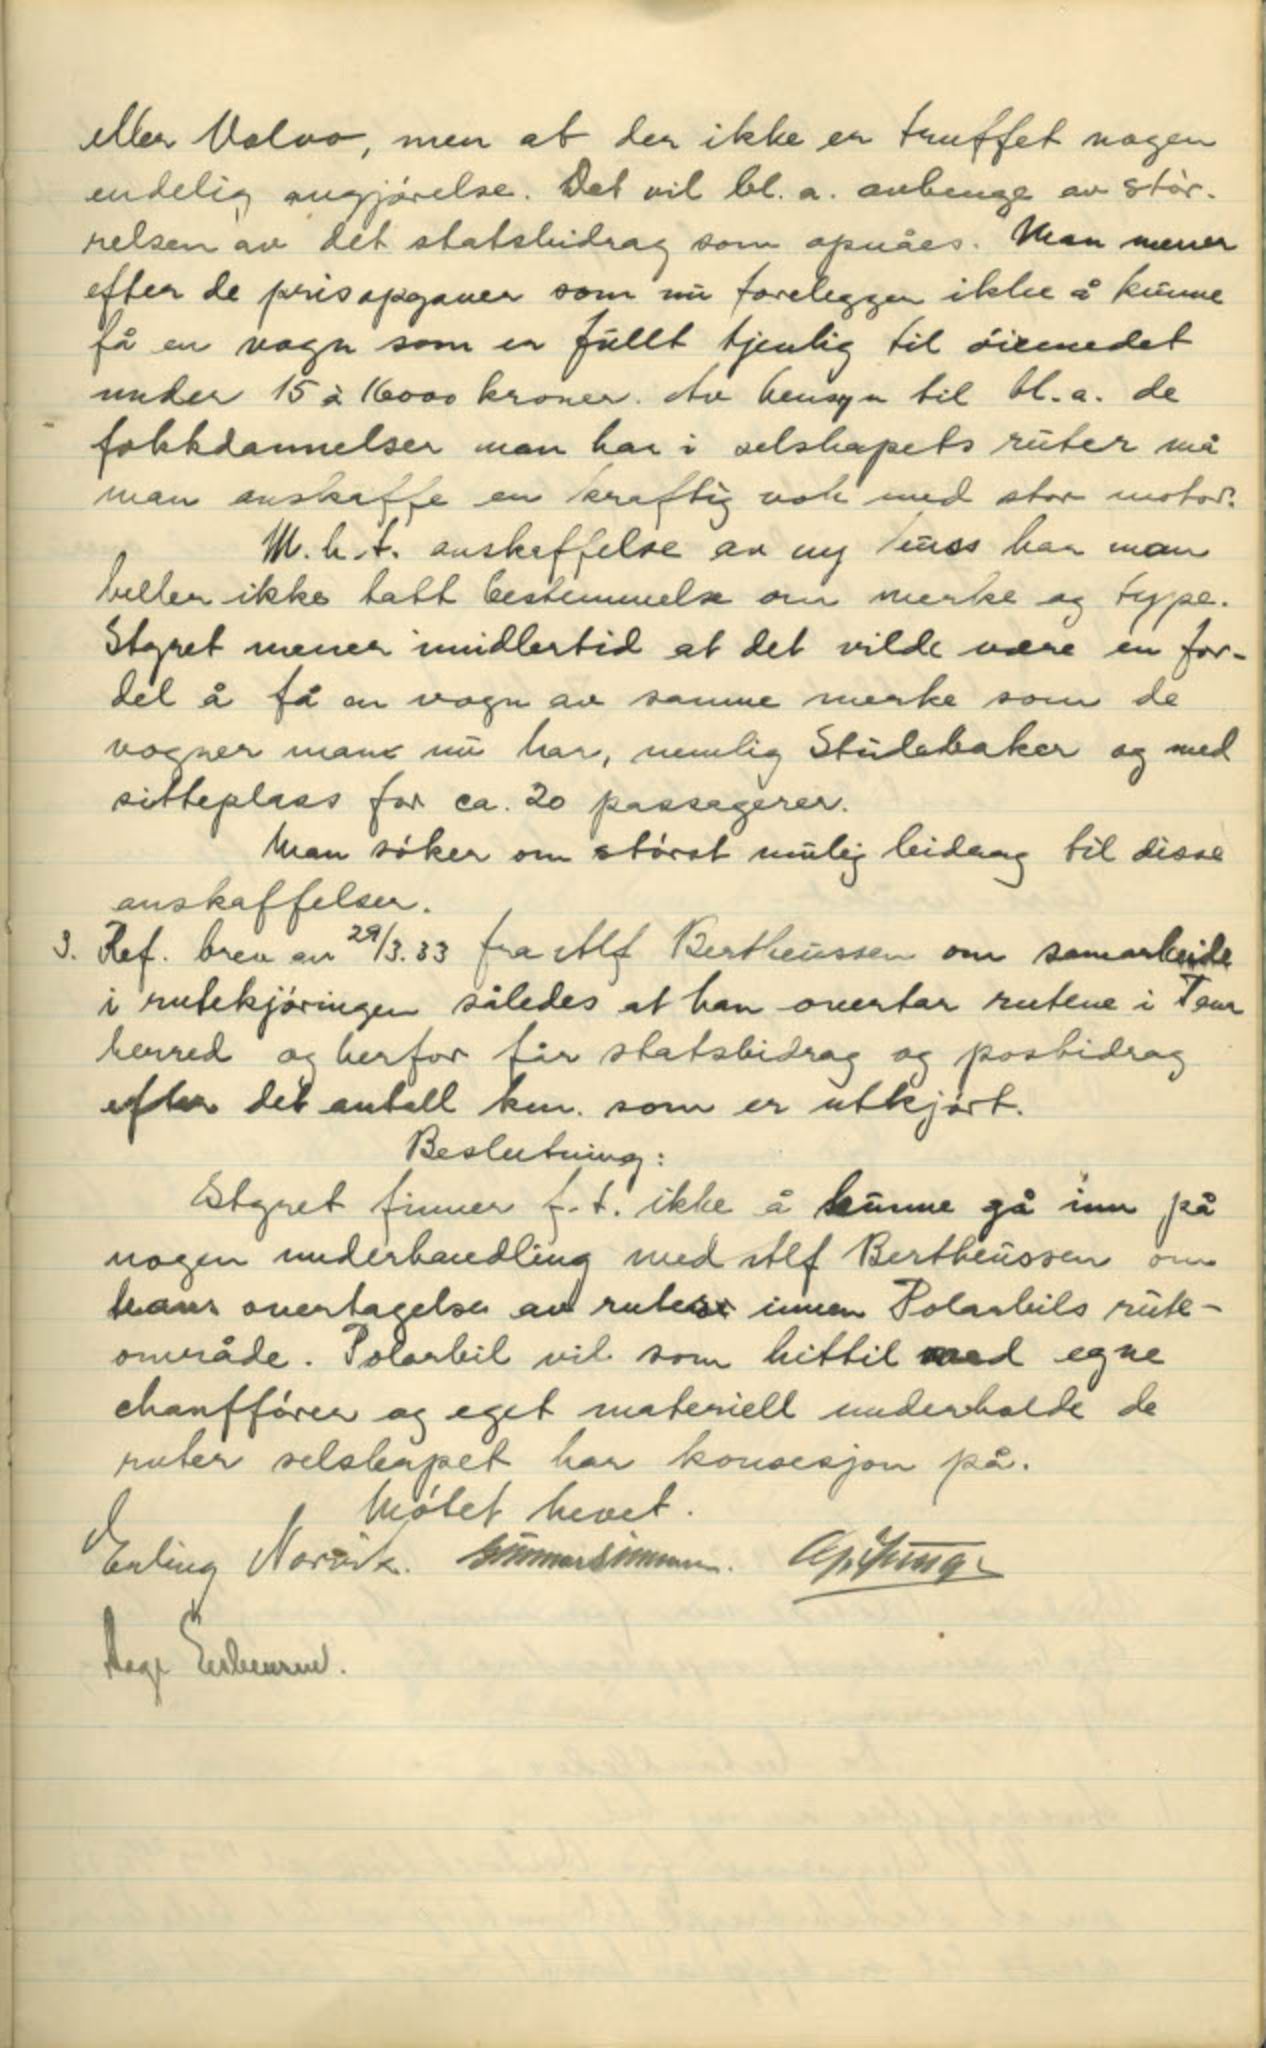 eller Volvo, men at der ikke er truffet nogen
endelig avgjørelse. Det vil bl. a. avhenge av stør-
relsen av det statsbidrag som opnåes. Man mener
efter de prisopgaver som nu forelegger ikke å kunne
få en vogn som er fullt tjenlig til øiemedet
under 15 à 16000 kroner. Av hensyn til bl. a. de
fokkdannelser man har i selskapets ruter må
man anskaffe en kraftig vok med stor motor.
M. h. t. anskaffelse av ny buss har man
heller ikke tatt bestemmelse om merke og type.
Styret mener imidlertid at det vilde være en for-
del å få en vogn av samme merke som de
vogner man nu har, nemlig Studebaker og med
sitteplass for ca. 20 passagerer.
Man søker om størst mulig bidrag til disse
anskaffelser.
3. Ref. brev av 29/3.33 fra Alf Bertheussen om samarbeide
i rutekjøringen således at han overtar rutene i Tana
herred og herfor får statsbidrag og postbidrag
efter det antall km. som er utkjørt.
Beslutning:
Styret finner f. t. ikke å kunne gå inn på
nogen underhandling med Alf Bertheussen om
hans overtagelse av ruter innen Polarbils rute-
område. Polarbil vil som hittil med egne
chauffører og eget materiell underholde de
ruter selskapet har konsesjon på.
Møtet hevet.
Erling Norvik.
Aage